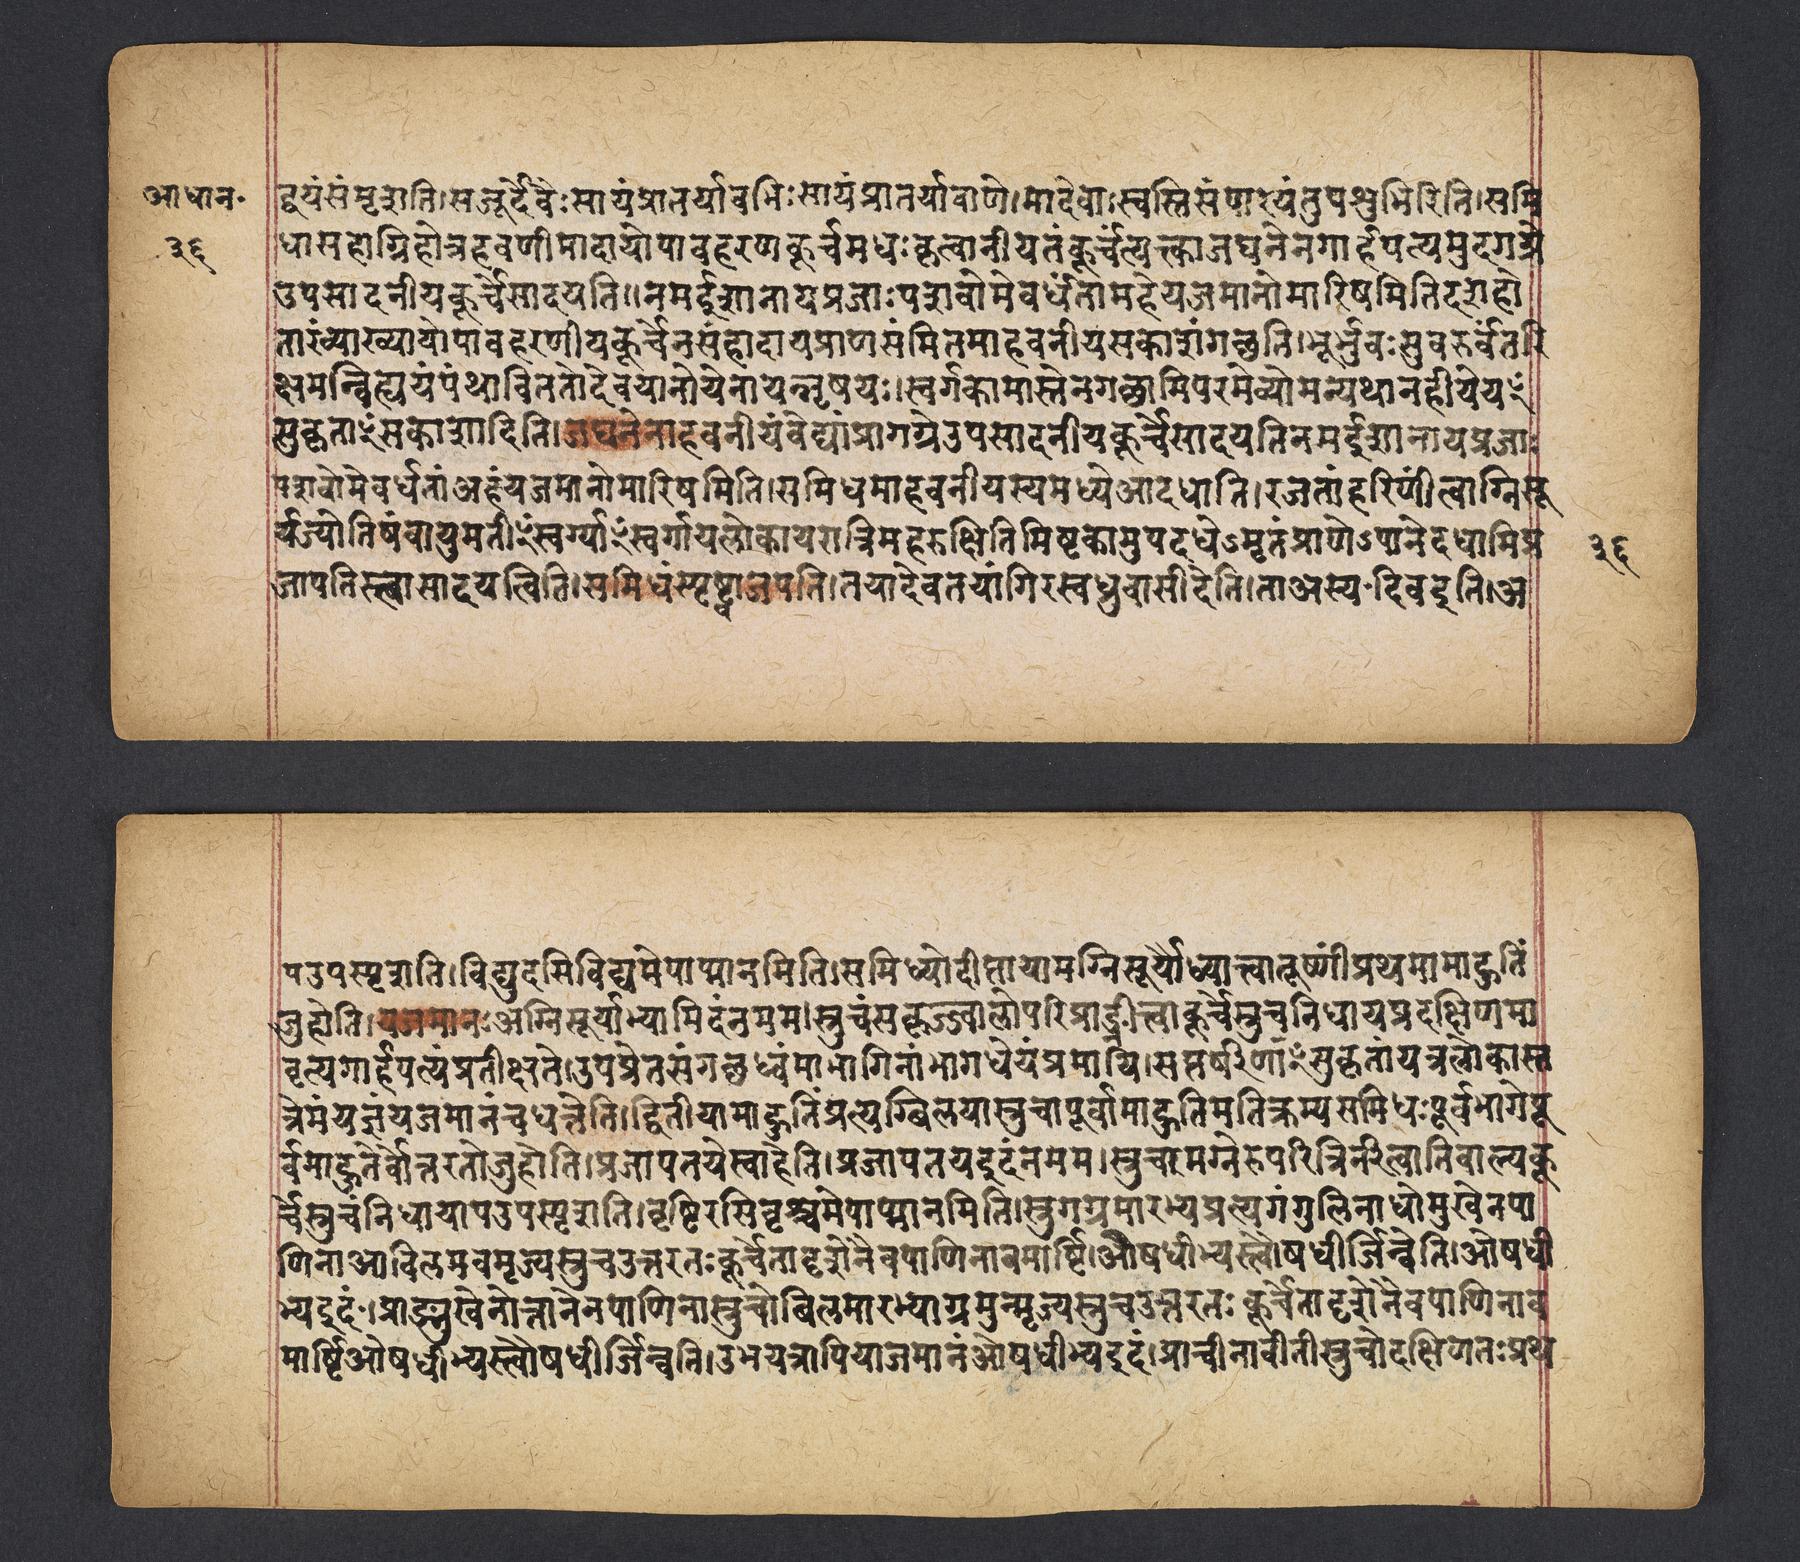 आधान॰
३६
वूयंसंमृशति।सजूर्देवैःसायंप्रातर्यावभिःसायंप्रातर्यावाणो।मादेवाःस्वस्तिसंपारयंतुपशुभिरिति।समि
धासहोग्निहोत्रहवणीमादायोपावहरणकूर्चमधःकृत्वानीयतंकूर्चंत्यत्त्काजघनेनगार्हपत्यमुदगग्रे
उपसादनीयकूर्चेसादयति॥नमईशानायप्रजाःपशवोमेवर्धंतामहंयजमानोमारिषमितिदशहो
तारंव्याख्यायोपावहरणीयकूर्चेनसंहादायप्राणसंमितमाहवनीयसकाशंगछति।भूर्भुवःसुवरुर्वंतरि
क्षमन्विह्ययंपंथाविततोदेवयानोयेनायन्नृषयः।स्वर्गकामास्तेनगछामिपरमेव्योमन्यथानहीयेयꣳ
सुकृताꣳसकाशादिति।जघनेनाहवनीयंवेद्यांप्रागग्रेउपसादनीयकूर्चेसादयतिनमईशानायप्रजाः
पशवोमेवर्धतांअहंयजमानोमारिषमिति।समिधमाहवनीयस्यमध्येआदधाति।रजतांहरिणींत्वाग्निसू
र्यज्योतिषंवायुमतीꣳस्वर्ग्याꣳस्वर्गायलोकायरात्रिमहरक्षितिमिष्टकामुपदधेऽमृतंप्राणेऽपानेदधामिप्र
३६
जापतिस्त्वासादयत्विति।समिधंस्पृष्ट्वाजपति।तयादेवतयांगिरस्वध्रुवासीदेति।ताअस्य॰दिवइति।अ
पउपस्पृशति।विद्युदसिविद्यमेपाप्मानमिति।समिध्योदीप्तायामग्निसूर्यौध्यात्वातूष्णींप्रथमामाहुतिं
जुहोति।यजमानःअग्निसूर्याभ्यामिदंनमम।स्त्रुचंसकृज्ज्वालोपरिप्राङ्नीत्वाकूर्चेस्त्रुचनिधायप्रदक्षिणमा
वृत्यगार्हपत्यंप्रतीक्षते।उपप्रेतसंगछध्वंमाभागिनांभागधेयंप्रमायि।सप्तर्षीणाꣳसुकृतांयत्रलोकास्त
त्रेमंयज्ञंयजमानंचधत्तेति।द्वितीयामाहुतिंप्रत्यग्बिलयास्त्रुचापूर्वामाहुतिमतिक्रम्यसमिधःपूर्वभागेपू
र्वमाहुतेर्वोत्तरतोजुहोति।प्रजापतयेस्वाहेति।प्रजापतयइदंनमम।स्त्रुचामग्नेरुपरित्रिर्नीत्वातिवाल्यकू
र्चेस्त्रुचंनिधायापउपस्पृशति।वृष्टिरसिवृश्च्यमेपाप्मानमिति।स्त्रुगग्रमारभ्यप्रत्यगंगुलिनाधोमुखेनपा
णिनाआबिलमवमृज्यस्त्रुचउत्तरतःकूर्चेतादृशेनैवपाणिनावमार्ष्टि।औषधीभ्यस्त्वौषधीर्जिन्वेति।ओषधी
भ्यइदं॰।प्राङ्मुखेनोत्तानेनपाणिनास्त्रुचोबिलमारभ्याग्रमुन्मृज्यस्त्रुचउत्तरतःकूर्चेतादृशेनैवपाणिनाव
मार्ष्टिओषधीभ्यस्त्वौषधीर्जिन्वति।उभयत्रापियाजमानंओषधीभ्यइदं।प्राचीनावीतीस्त्रुचोदक्षिणतःप्रथ